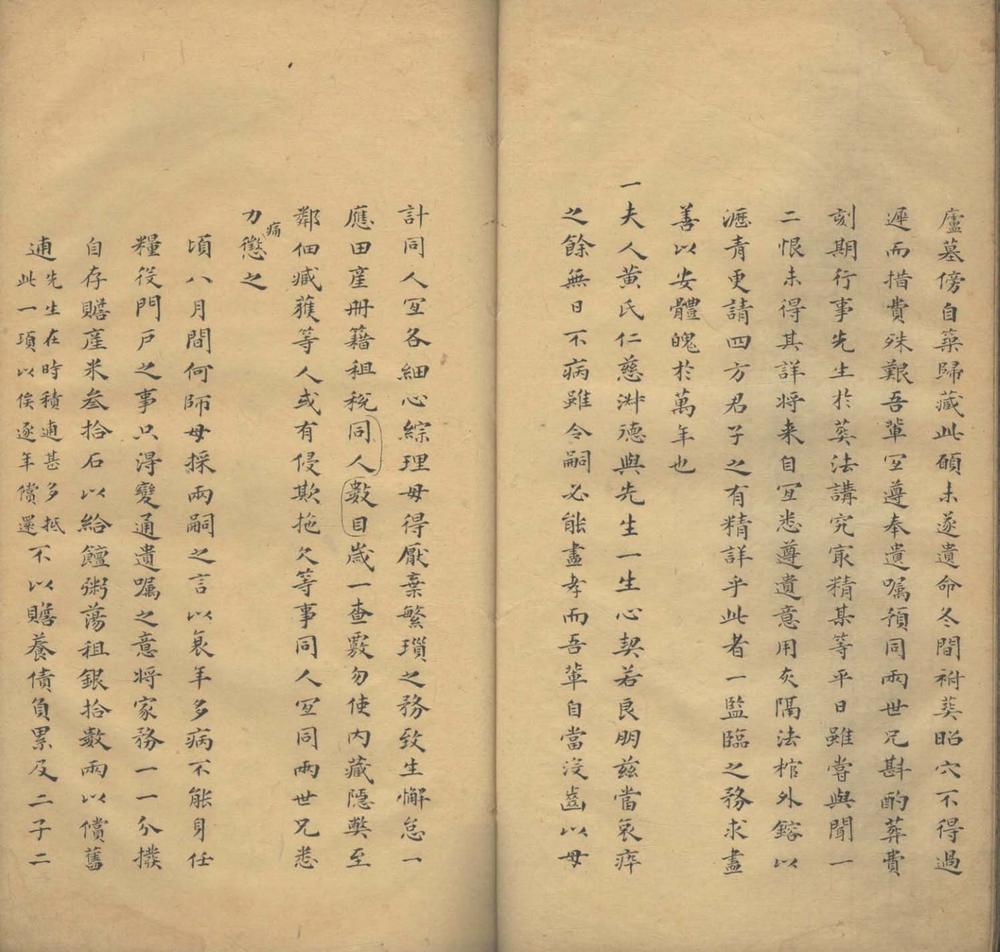 廬墓傍自築歸藏此碩未遂遺命冬間祔葬昭穴不得過
遲而措費殊艱吾輩宜遵奉遺囑預同兩世兄斟酌葬費
刻期行事先生於葬法講究㝡精某等平日雖嘗與聞一
二恨未得其詳將来自宜悉遵遺意用灰隔法棺外鎔以
瀝青更請四方君子之有精詳乎此者一監臨之務求盡
善以安體魄於萬年也
一夫人黃氏仁慈淑德與先生一生心契若良朋兹當哀瘁
之餘無日不病雖令嗣必能盡孝而吾輩自當没齒以母
計同人宜各細心綜理毋得厭棄繁瑣之務致生懈怠一
應田產册籍租稅同人數目歲一查覈勿使内藏隱弊至
鄰佃臧獲等人或有侵欺拖欠等事同人宜同兩世兄悉
力痛懲之
頃八月間何師母採兩嗣之言以衰年多病不能身任
糧役門戸之事只淂變通遺囑之意將家務一一分撥
自存贍產米叁拾石以給饘粥蕩租銀拾數兩以償舊
逋先生在時積逋甚多抵此一項以俟逐年償還不以贍養債負累及二子二